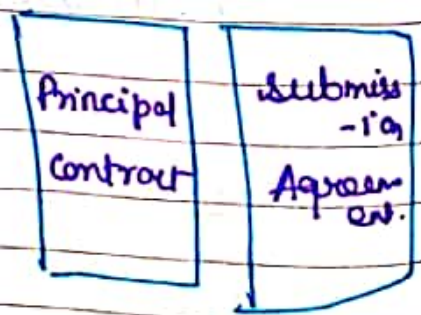 Principal
Contract
Submiss
-ion
Agreem
ent.